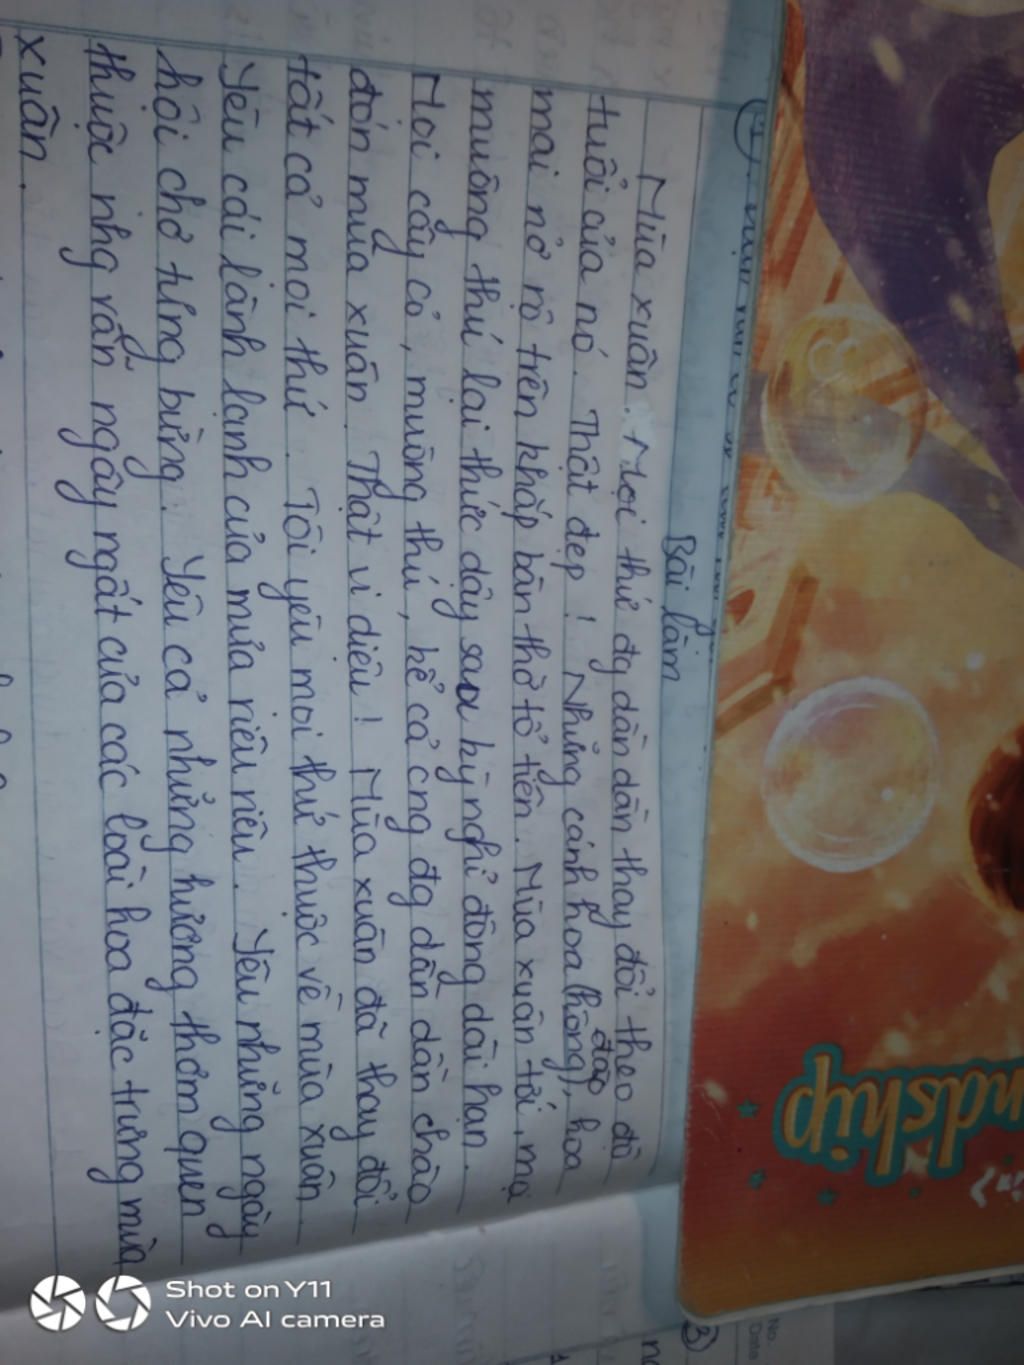 Bài làm
Mùa xuân. Mọi thứ đg dần dần thay đổi theo độ
tuổi của nó. Thật đẹp! Những cánh hoa (hồng), đào hoa
mai nở rộ trên khắp bàn thờ tổ tiên. Mùa xuân tới, mọi
muông thú lại thức dậy sau kỳ nghỉ đông dài hạn.
Mọi cây cỏ, muông thú, kể cả cng đg dần dần chào
đón mùa xuân. Thật vi diệu! Mùa xuân đã thay đổi
tất cả mọi thứ. Tôi yêu mọi thứ thuộc về mùa xuân.
Yêu cái lành lạnh của mưa riêu riêu. Yêu những ngày
hội chợ tưng bừng. Yêu cả những hương thơm quen
thuộc nhg vẫn ngây ngất của các loài hoa đặc trưng mùa
xuân.
ndship
Shot on Y11
Vivo AI camera
No.
Date
3